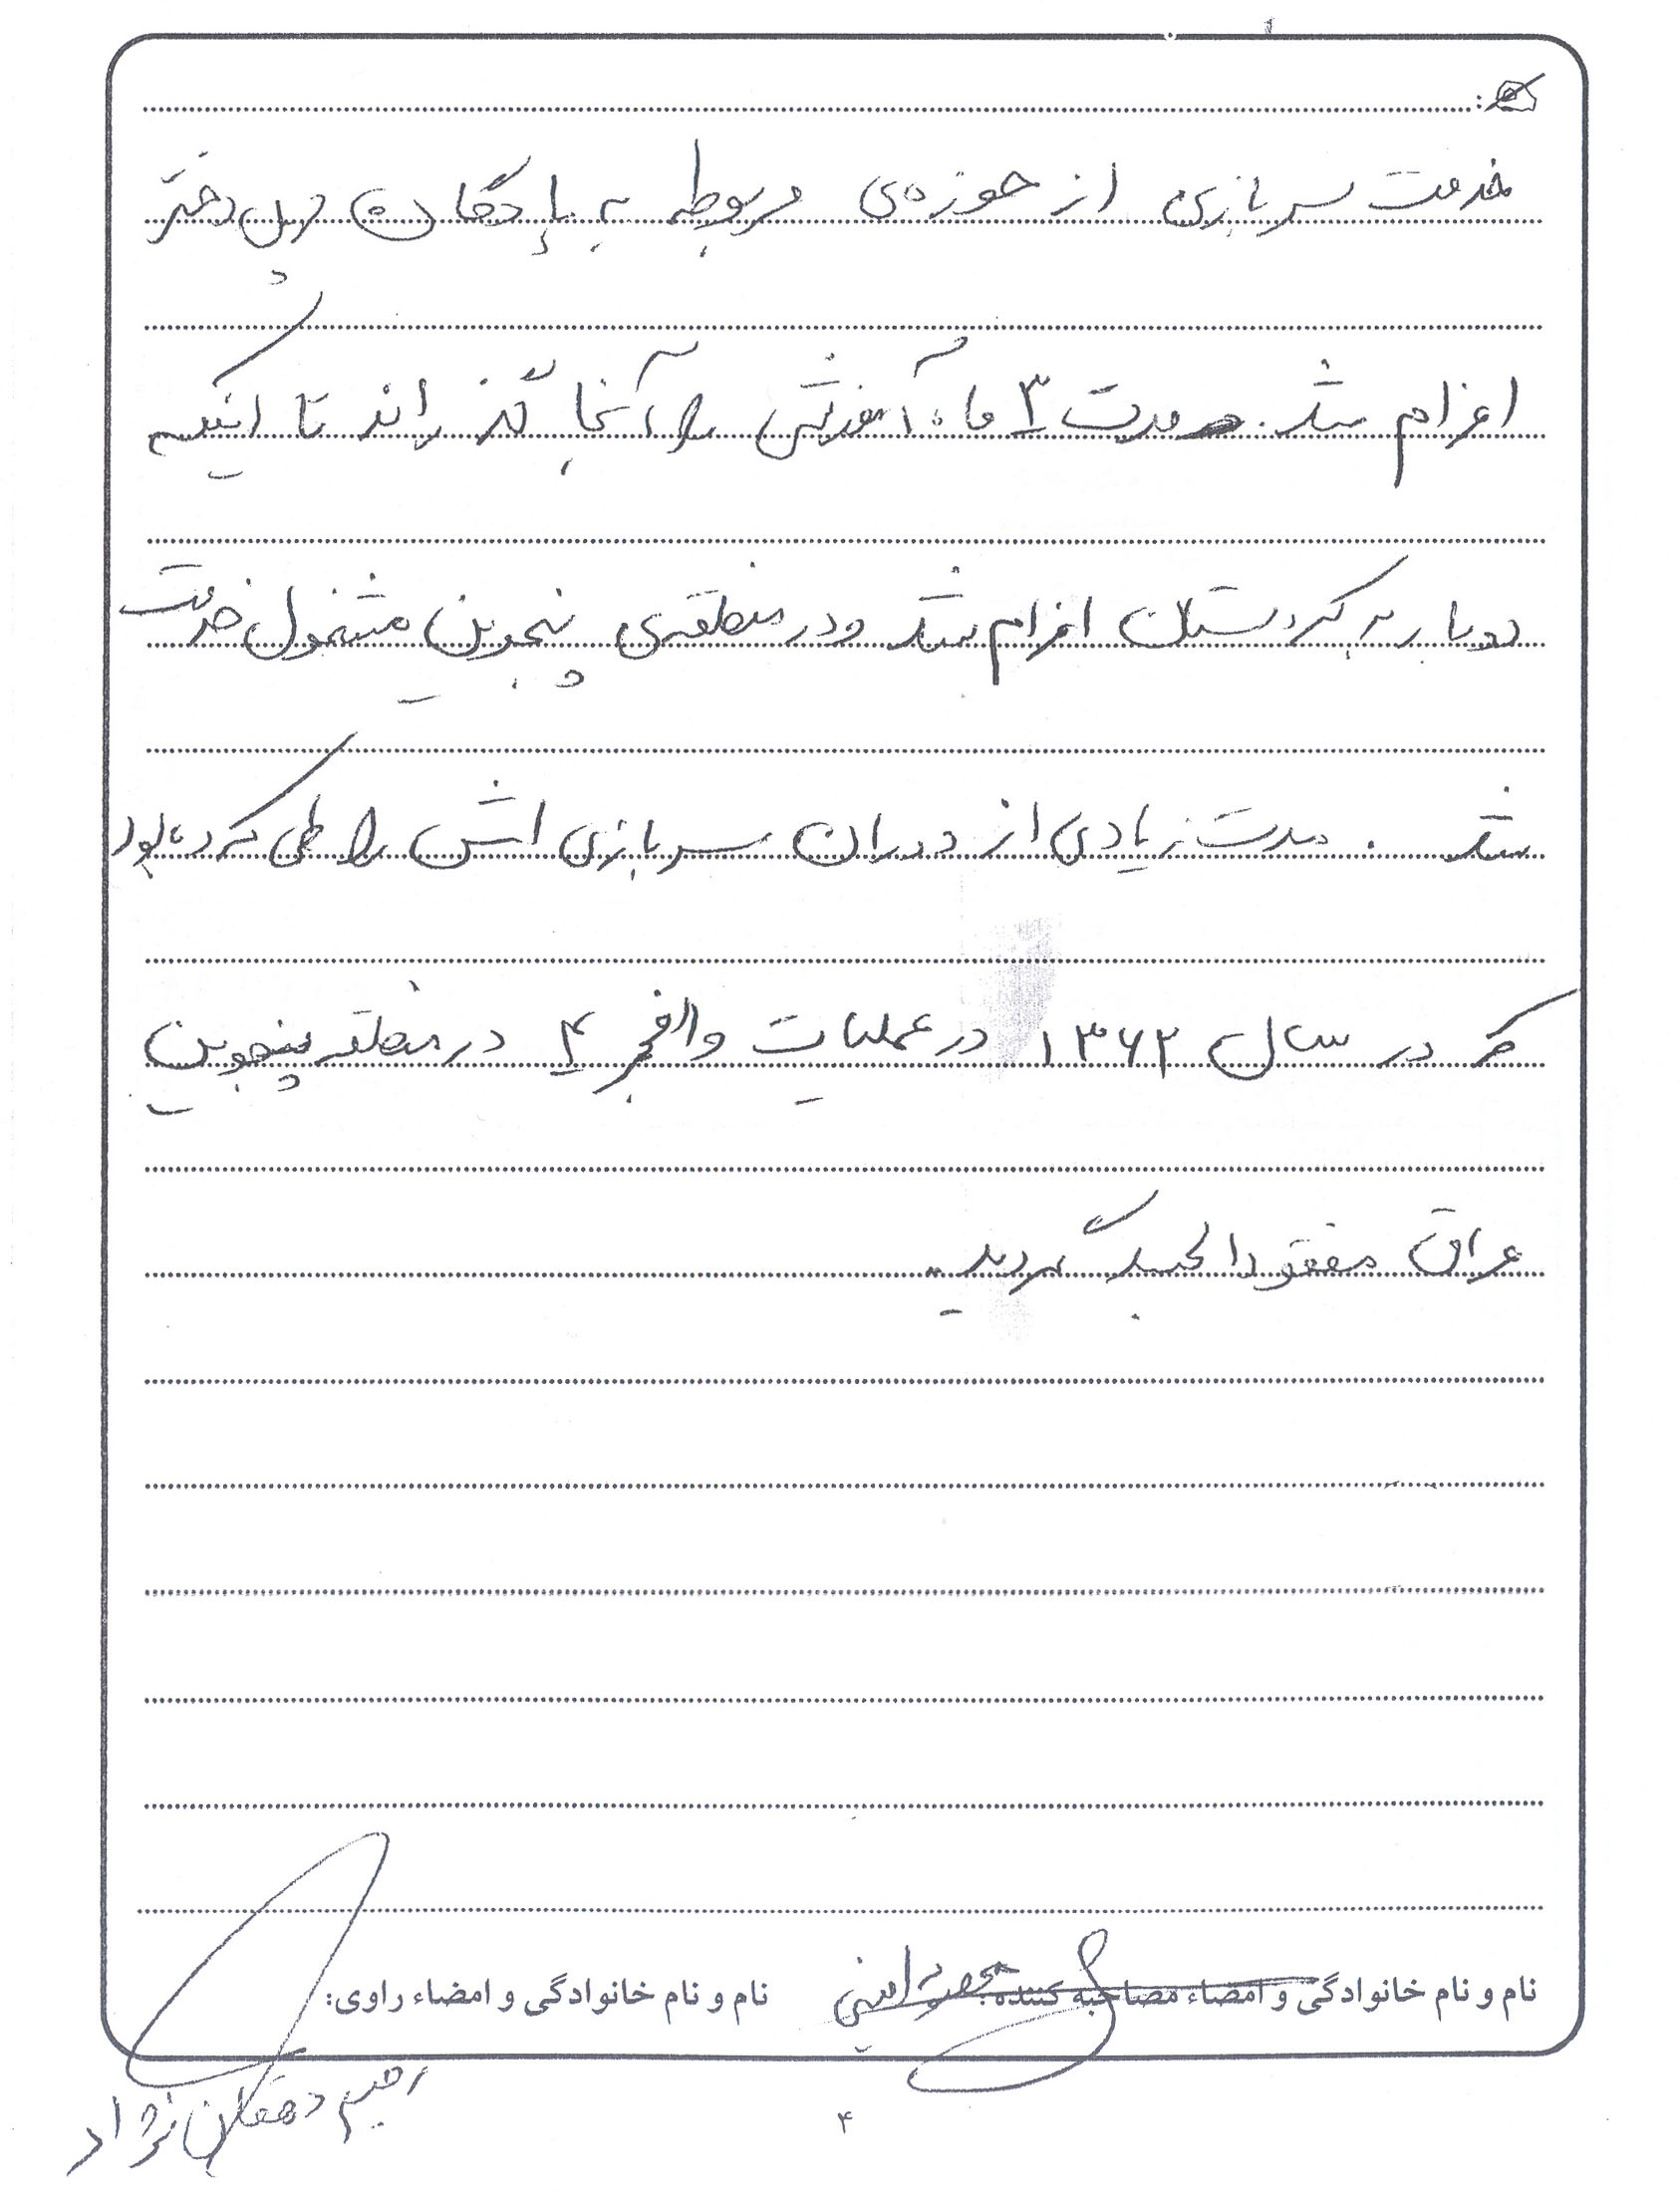 خدمت سربازی از حوزه‌ی مربوطه به پادگان پل دختر
اعزام شد. مدت ۳ ماه آموزشی را آنجا گذراند تا اینکه
دوباره به کردستان اعزام شد و در منطقه‌ی پنجوین مشغول خدمت
شد. مدت زیادی از دوران سربازی اش را طی کرده بود
که در سال ۱۳۶۲ در عملیات والفجر ۴ در منطقه پنجوین
عراق مفقودالجسد گردید.
نام و نام خانوادگی و امضاء مصاحبه کننده: امینی نام و نام خانوادگی و امضاء راوی:
رحیم دهقان نژاد
۴